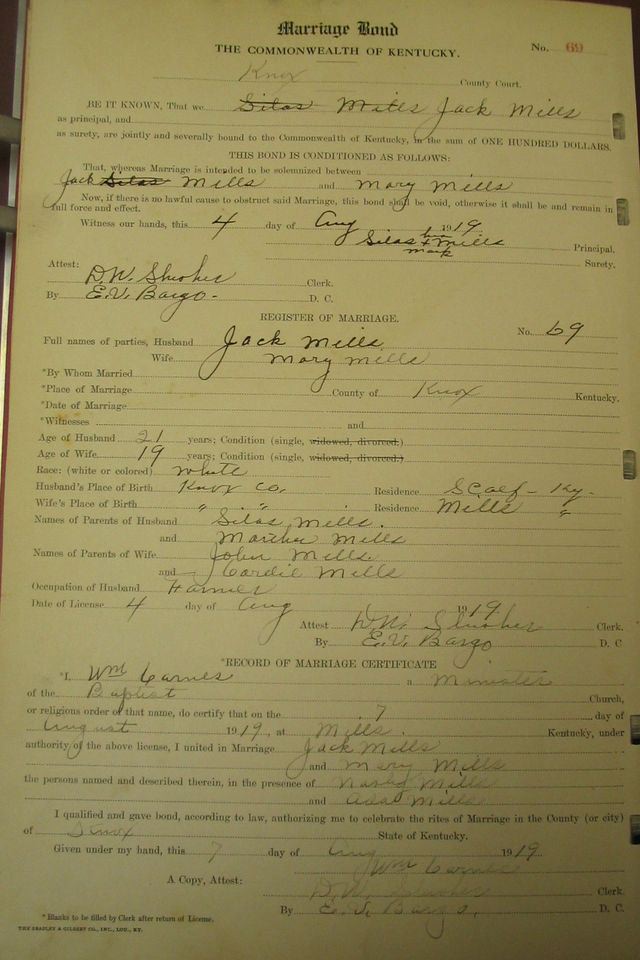 Marriage Bond
THE COMMONWEALTH OF KENTUCKY.
No. 69
Knox County Court.
BE IT KNOWN, That we Silas Mills Jack Mills
as principal, and
as surety, are jointly and severally bound to the Commonwealth of Kentucky, in the sum of ONE HUNDRED DOLLARS.
THIS BOND IS CONDITIONED AS FOLLOWS:
That, whereas Marriage is intended to be solemnized between
Jack Silas Mills and Mary Mills
Now, if there is no lawful cause to obstruct said Marriage, this bond shall be void, otherwise it shall be and remain in
full force and effect.
Witness our hands, this 4 day of Aug 1919.
Silas his x mark Mills Principal.
Surety.
Attest:
D.W. Slusher Clerk.
By E.V. Bargo D. C.
REGISTER OF MARRIAGE.
No. 69
Full names of parties, Husband Jack Mills
Wife Mary Mills
*By Whom Married
*Place of Marriage County of Knox Kentucky.
*Date of Marriage
*Witnesses and
Age of Husband 21 years; Condition (single, widowed, divorced.)
Age of Wife 19 years; Condition (single, widowed, divorced.)
Race: (white or colored) White
Husband's Place of Birth Knox Co. Residence Scalf - Ky.
Wife's Place of Birth " " Residence Mills "
Names of Parents of Husband Silas Mills.
and Martha Mills
Names of Parents of Wife John Mills
and Cordie Mills
Occupation of Husband Farmer
Date of License 4 day of Aug 1919.
Attest D.W. Slusher Clerk.
By E.V. Bargo D. C
*RECORD OF MARRIAGE CERTIFICATE
*I, Wm Carnes a Minister
of the Baptist Church,
or religious order of that name, do certify that on the 7 day of
August 1919, at Mills Kentucky, under
authority of the above license, I united in Marriage Jack Mills
and Mary Mills
the persons named and described therein, in the presence of Mills
and Mills
I qualified and gave bond, according to law, authorizing me to celebrate the rites of Marriage in the County (or city)
of Knox State of Kentucky.
Given under my hand, this 7 day of Aug 1919
Wm Carnes
A Copy, Attest: D.W. Slusher Clerk.
By E.V. Bargo, D. C.
* Blanks to be filled by Clerk after return of License.
THE BRADLEY & GILBERT CO., INC., LOU., KY.